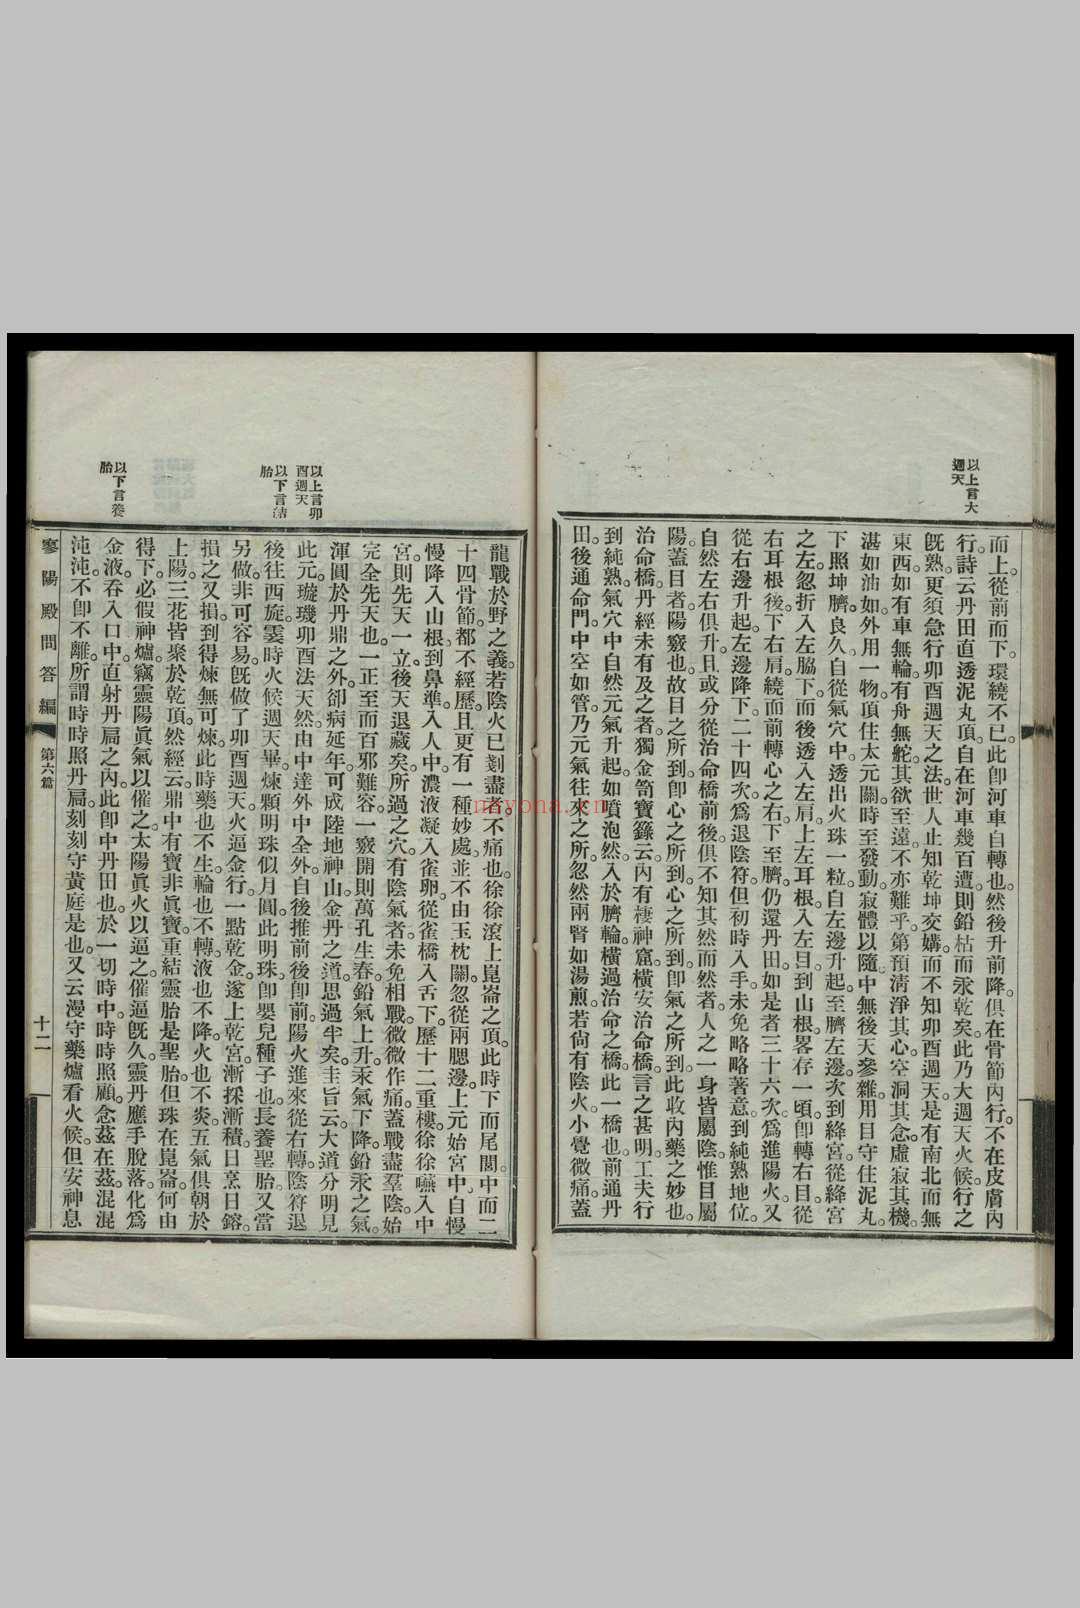 以上言大
週天
而上。從前而下。環繞不已。此卽河車自轉也。然後升前降。俱在骨節內行。不在皮膚內
行。詩云丹田直透泥丸頂。自在河車幾百遭。則鉛枯而汞乾矣。此乃大週天火候。行之
旣熟。更須急行卯酉週天之法。世人止知乾坤交媾。而不知卯酉週天。是有南北而無
東西。如有車無輪。有舟無舵。其欲至遠。不亦難乎。第預淸淨其心。空洞其念。虛寂其機。
湛如油。如外用一物。頂住太元關。時至發動。寂體以隨。中無後天參雜。用目守住泥丸。
下照坤臍。良久。自從氣穴中。透出火珠一粒。自左邊升起。至臍左邊。次到絳宮。從絳宮
之左。忽折入左脇下。而後透入左肩。上左耳根。入左目。到山根。畧存一頃。卽轉右目。從
右耳根後。下右肩。繞而前轉心之右。下至臍。仍還丹田。如是者三十六次。爲進陽火。又
從右邊升起。左邊降下。二十四次。爲退陰符。但初時入手。未免略略著意。到純熟地位。
自然左右俱升。且或分從治命橋前後。俱不知其然而然者。人之一身皆屬陰。惟目屬
陽。蓋目者。陽竅也。故目之所到。卽心之所到。心之所到。卽氣之所到。此收內藥之妙也。
治命橋。丹經未有及之者。獨金笥寶籙云。內有棲神窟。橫安治命橋。言之甚明。工夫行
到純熟。氣穴中自然元氣升起。如噴泡然。入於臍輪。橫過治命之橋。此一橋也。前通丹
田。後通命門。中空如管。乃元氣往來之所。忽然兩腎如湯煎。若尙有陰火。小覺微痛。蓋
以上言卯
酉週天
以下言結
胎
以下言養
胎
龍戰於野之義。若陰火已剗盡者。不痛也。徐徐滾上崑崙之頂。此時下而尾閭。中而二
十四骨節。都不經歷。且更有一種妙處。並不由玉枕關。忽從兩腮邊。上元始宮中。自慢
慢降入山根。到鼻準。入人中。濃液凝入雀卵。從雀橋入舌下。歷十二重樓。徐徐嚥入中
宮。則先天一立。後天退藏矣。所過之穴。有陰氣者。未免相戰。微微作痛。蓋戰盡羣陰。始
完全先天也。一正至而百邪難容。一竅開則萬孔生春。鉛氣上升。汞氣下降。鉛汞之氣。
渾圓於丹鼎之外。卻病延年。可成陸地神仙。金丹之道。思過半矣。圭旨云。大道分明見
此元。璇璣卯酉法天然。由中達外中全外。自後推前後卽前。陽火進來從右轉。陰符退
後往西旋。霎時火候週天畢。煉顆明珠似月圓。此明珠卽嬰兒種子也。長養聖胎。又當
另做。非可容易。旣做了卯酉週天。火逼金行。一點乾金。遂上乾宮。漸採漸積。日烹日鎔。
損之又損。到得煉無可煉。此時藥也不生。輪也不轉。液也不降。火也不炎。五氣俱朝於
上陽。三花皆聚於乾頂。然經云。鼎中有寶非眞寶。重結靈胎是聖胎。但珠在崑崙。何由
得下。必假神爐。竊靈陽眞氣以催之。太陽眞火以逼之。催逼旣久。靈丹應手脫落。化爲
金液。吞入口中。直射丹扃之內。此卽中丹田也。於一切時中。時時照顧。念茲在茲。混混
沌沌。不卽不離。所謂時時照丹扃。刻刻守黃庭是也。又云。漫守藥爐看火候。但安神息
寥陽殿問答編
第六篇
十二
nayona.cn